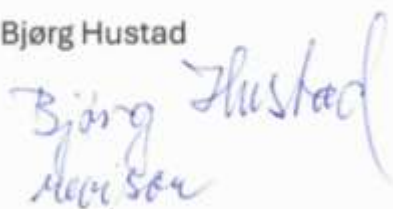 Bjørg Hustad
Bjørg Hustad
revisor